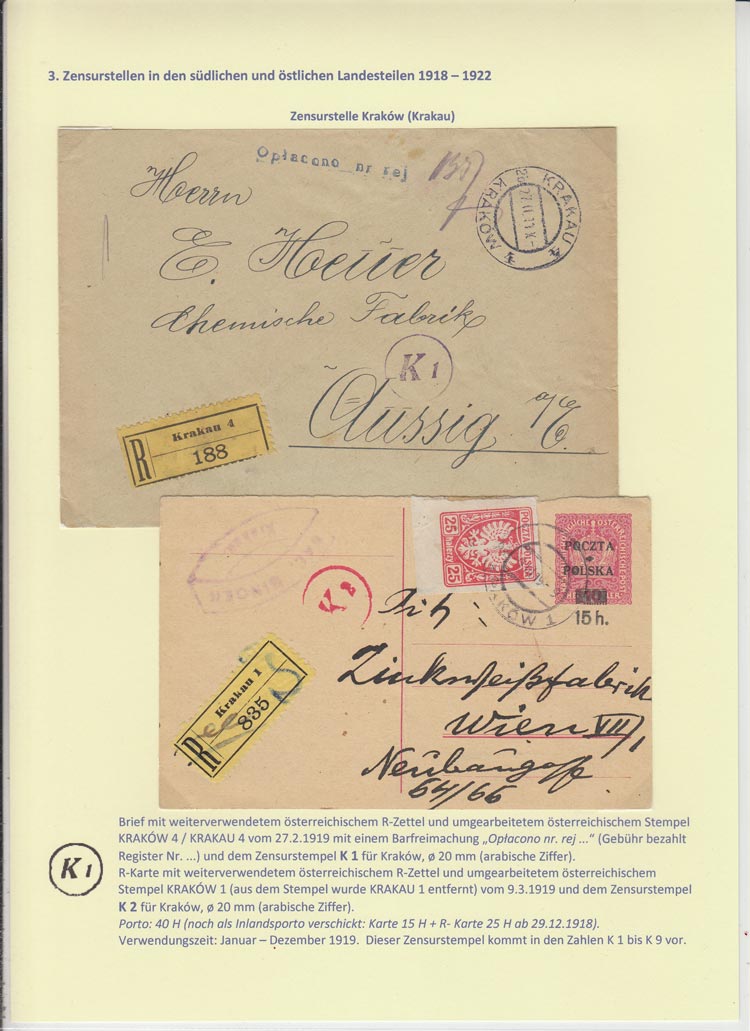 3. Zensurstellen in den südlichen und östlichen Landesteilen 1918 – 1922
Zensurstelle Kraków (Krakau)
Opłacono nr rej
Herrn
E. Heller
Chemische Fabrik
Aussig a/E.
KRAKAU 4 KRAKÓW 4
K 1
R
Krakau 4
188
25 halerzy 25
POCZTA POLSKA
POCZTA
POLSKA
15 h.
KRAKÓW 1
K 2
R
Krakau 1
835
Zinkweißfabrik
Wien VII/1
Neubaugasse
64/66
Brief mit weiterverwendetem österreichischem R-Zettel und umgearbeitetem österreichischem Stempel
KRAKÓW 4 / KRAKAU 4 vom 27.2.1919 mit einem Barfreimachung „Opłacono nr. rej ...“ (Gebühr bezahlt
Register Nr. ...) und dem Zensurstempel K 1 für Kraków, ø 20 mm (arabische Ziffer).
R-Karte mit weiterverwendetem österreichischem R-Zettel und umgearbeitetem österreichischem
Stempel KRAKÓW 1 (aus dem Stempel wurde KRAKAU 1 entfernt) vom 9.3.1919 und dem Zensurstempel
K 2 für Kraków, ø 20 mm (arabische Ziffer).
Porto: 40 H (noch als Inlandsporto verschickt: Karte 15 H + R- Karte 25 H ab 29.12.1918).
Verwendungszeit: Januar – Dezember 1919. Dieser Zensurstempel kommt in den Zahlen K 1 bis K 9 vor.
K 1